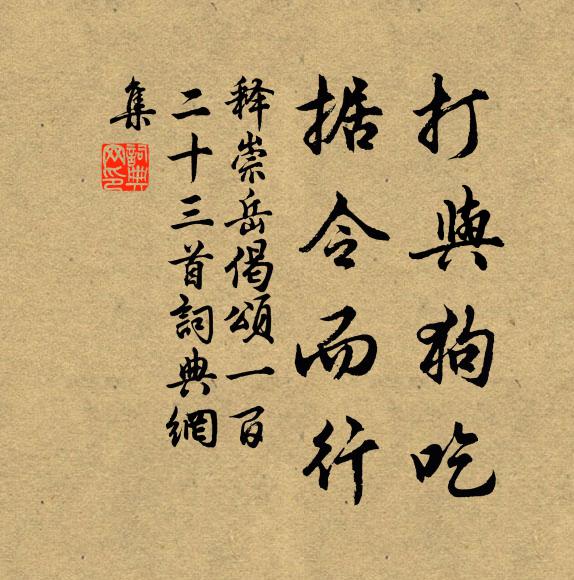 打與狗吃
据令而行
释崇岳偈頌一百
二十三首詞典網
集
詞典網印